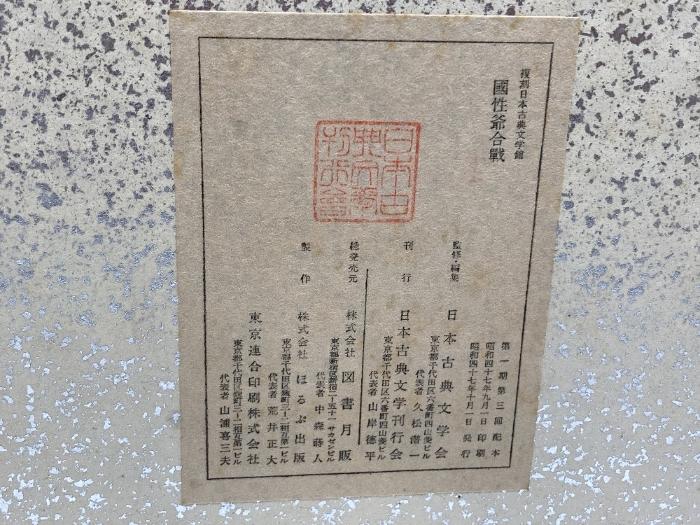 複刻日本古典文学館
國性爺合戰
第一期第三回配本
昭和四十七年九月一日 印刷
昭和四十七年十月一日 発行
監修・編集 日本古典文学会
東京都千代田区六番町四山奏ビル
代表者 久松潜一
刊行 日本古典文学刊行会
東京都千代田区六番町四山奏ビル
代表者 山岸德平
総発売元 株式会社 図書月販
代表者 中森蒔人
製作 株式会社 ほるぷ出版
代表者 荒井正大
東京連合印刷株式会社
代表者 山浦喜三夫
日本古典文學刊行會